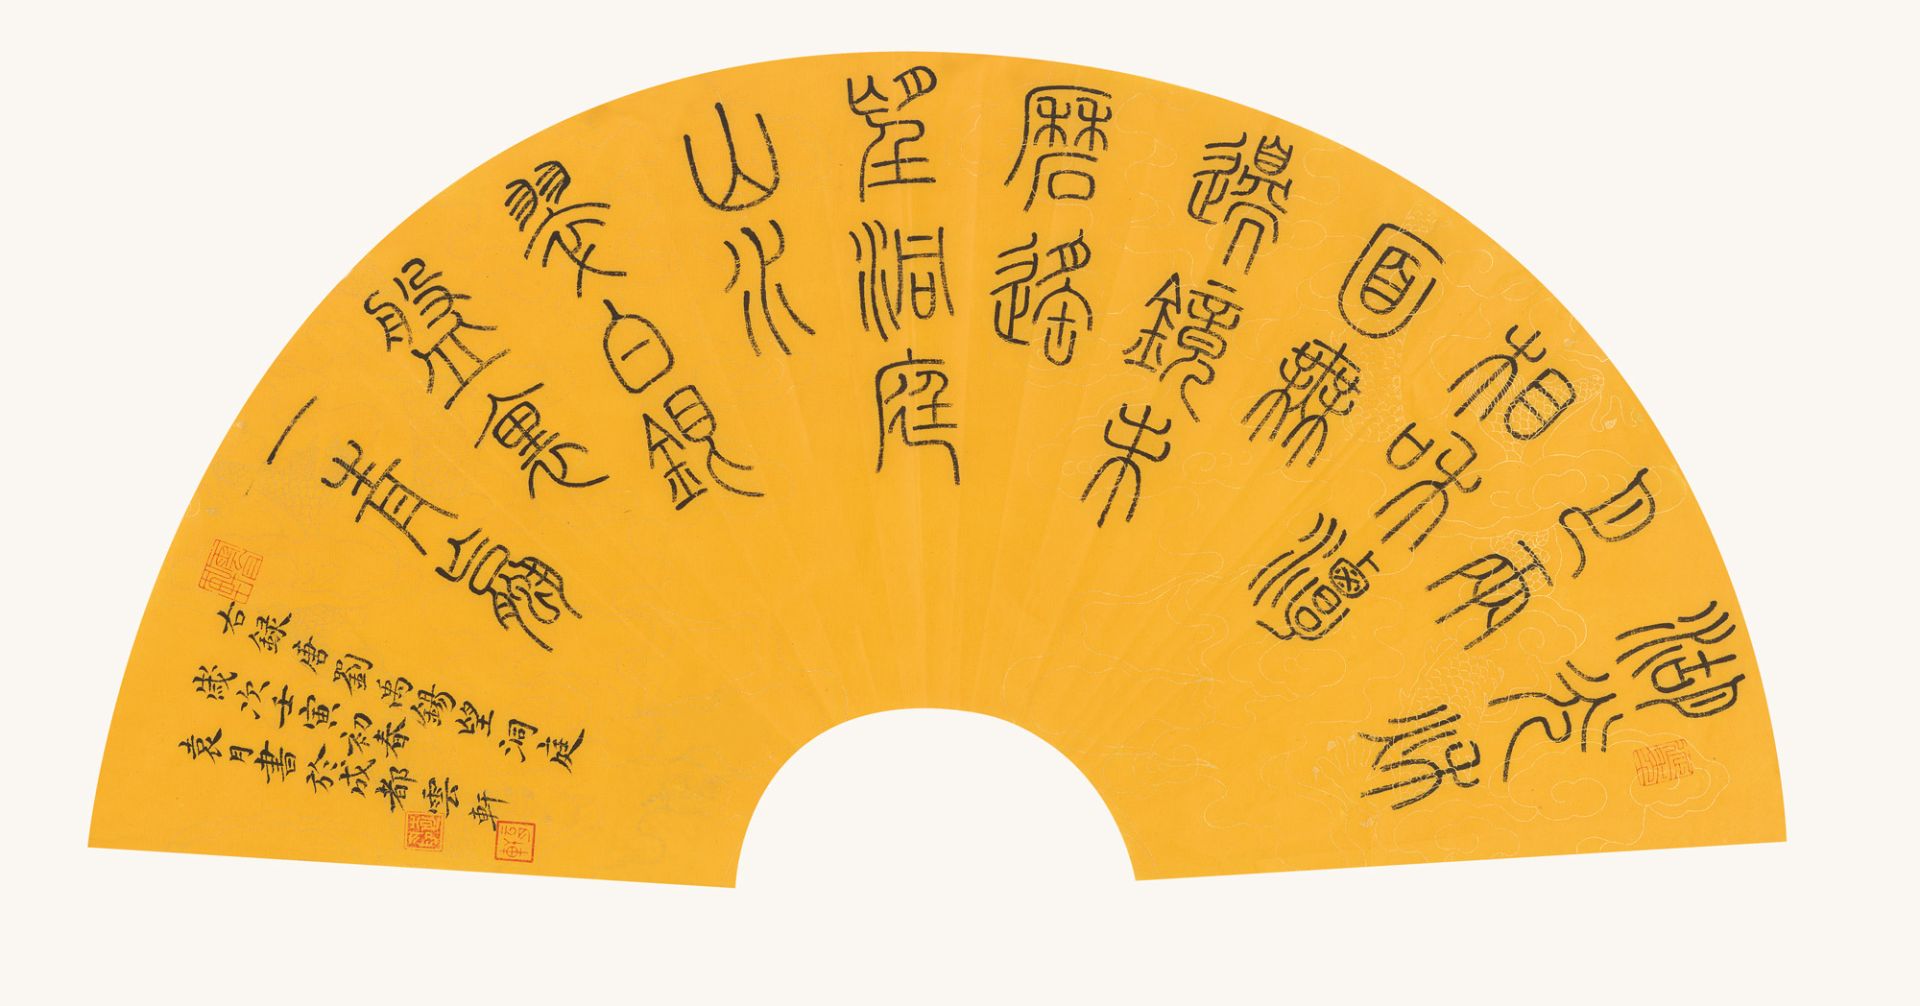 湖光秋
月兩
相和潭
面無
邊鏡未
磨遙
望洞庭
山水
翠白銀
盤裏
一青螺
右録唐劉禹錫望洞庭
歲次壬寅初春
袁月書於成都雲軒